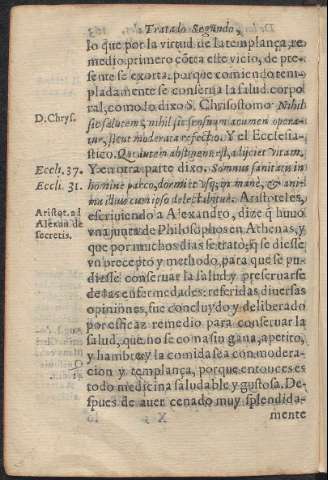 Tratado Segundo,
lo que por la virtud de la templança, re
medio primero cõtra este vicio, de pre-
sente se exorta: porque comiendo tem-
pladamente se conserua la salud corpo
ral, como lo dixo S. Chrisostomo: Nihil
D. Chrys.
sic salutem, nihil sic sensuum acumen opera-
tur, sicut moderata refectio. Y el Ecclesia-
stico. Qui autem abstinens est, adijciet vitam.
Eccli. 37.
Y en otra parte dixo. Somnus sanitatis in
Eccli. 31.
homine parco, dormiet vsq; in mane, & ani-
ma illius cum ipso delectabitur. Aristoteles,
Aristot. ad
Alexan. de
secretis.
escriuiendo a Alexandro, dize q̃ huuo
vna junta de Philosophos en Athenas, y
que por muchos dias se trato; q̃ se diesse
vn precepto y methodo, para que se pu
diesse conseruar la salud, y preseruarse
de las enfermedades: referidas diuersas
opiniones, fue concluydo y deliberado
por eficaz remedio para conseruar la
salud, que no se coma sin gana, apetito,
y hambre, y la comida sea con modera-
cion y templança, porque entonces es
todo medicina saludable y gustosa. De-
spues de auer cenado muy splendida-
mente